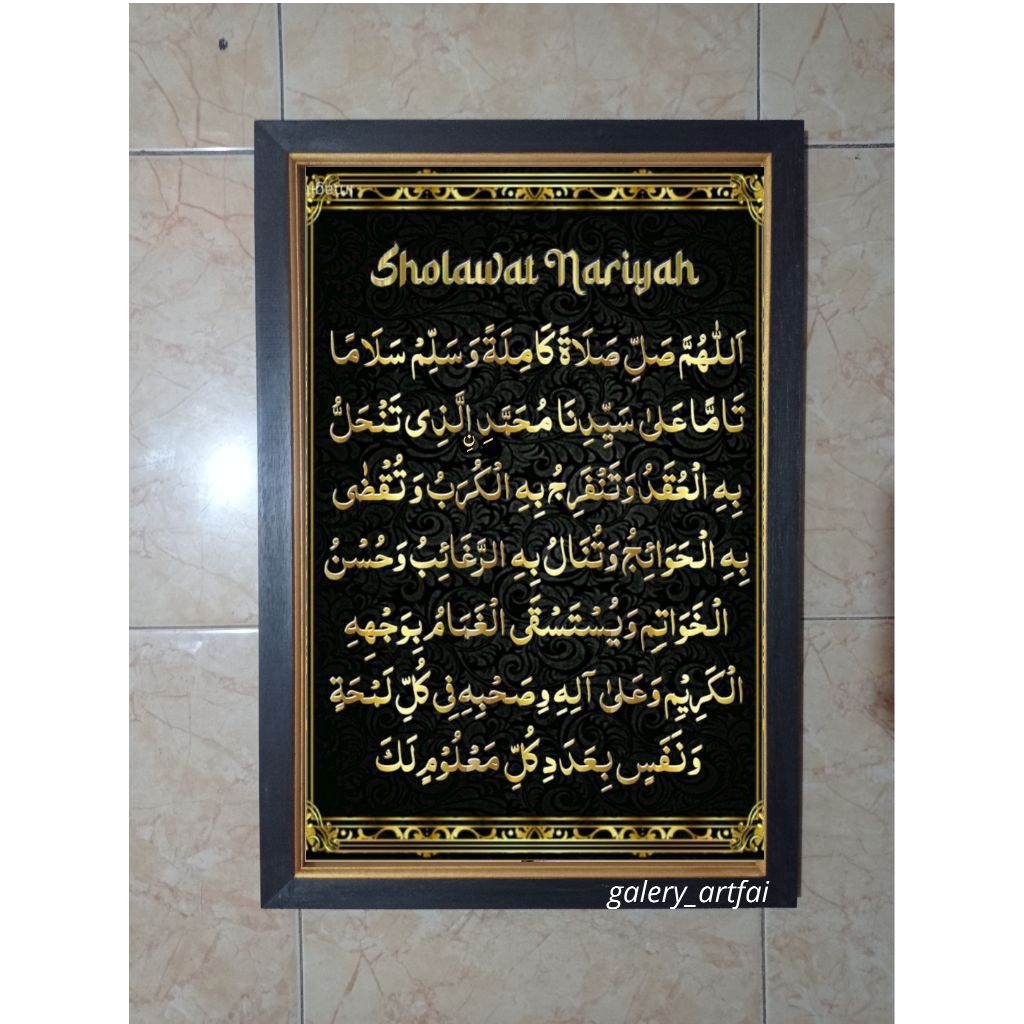 Sholawat Nariyah
اَللّٰهُمَّ صَلِّ صَلَاةً كَامِلَةً وَسَلِّمْ سَلَامًا
تَامًّا عَلىٰ سَيِّدِنَا مُحَمَّدِ ࣙالَّذِى تَنْحَلُّ
بِهِ الْعُقَدُ وَتَنْفَرِجُ بِهِ الْكُرَبُ وَتُقْضٰى
بِهِ الْحَوَائِجُ وَتُنَالُ بِهِ الرَّغَائِبُ وَحُسْنُ
الْخَوَاتِمِ وَيُسْتَسْقَى الْغَمَامُ بِوَجْهِهِ
الْكَرِيْمِ وَعَلىٰ آلِهِ وِصَحْبِهِ فِى كُلِّ لَمْحَةٍ
وَنَفَسٍ بِعَدَدِ كُلِّ مَعْلُوْمٍ لَكَ
galery_artfai